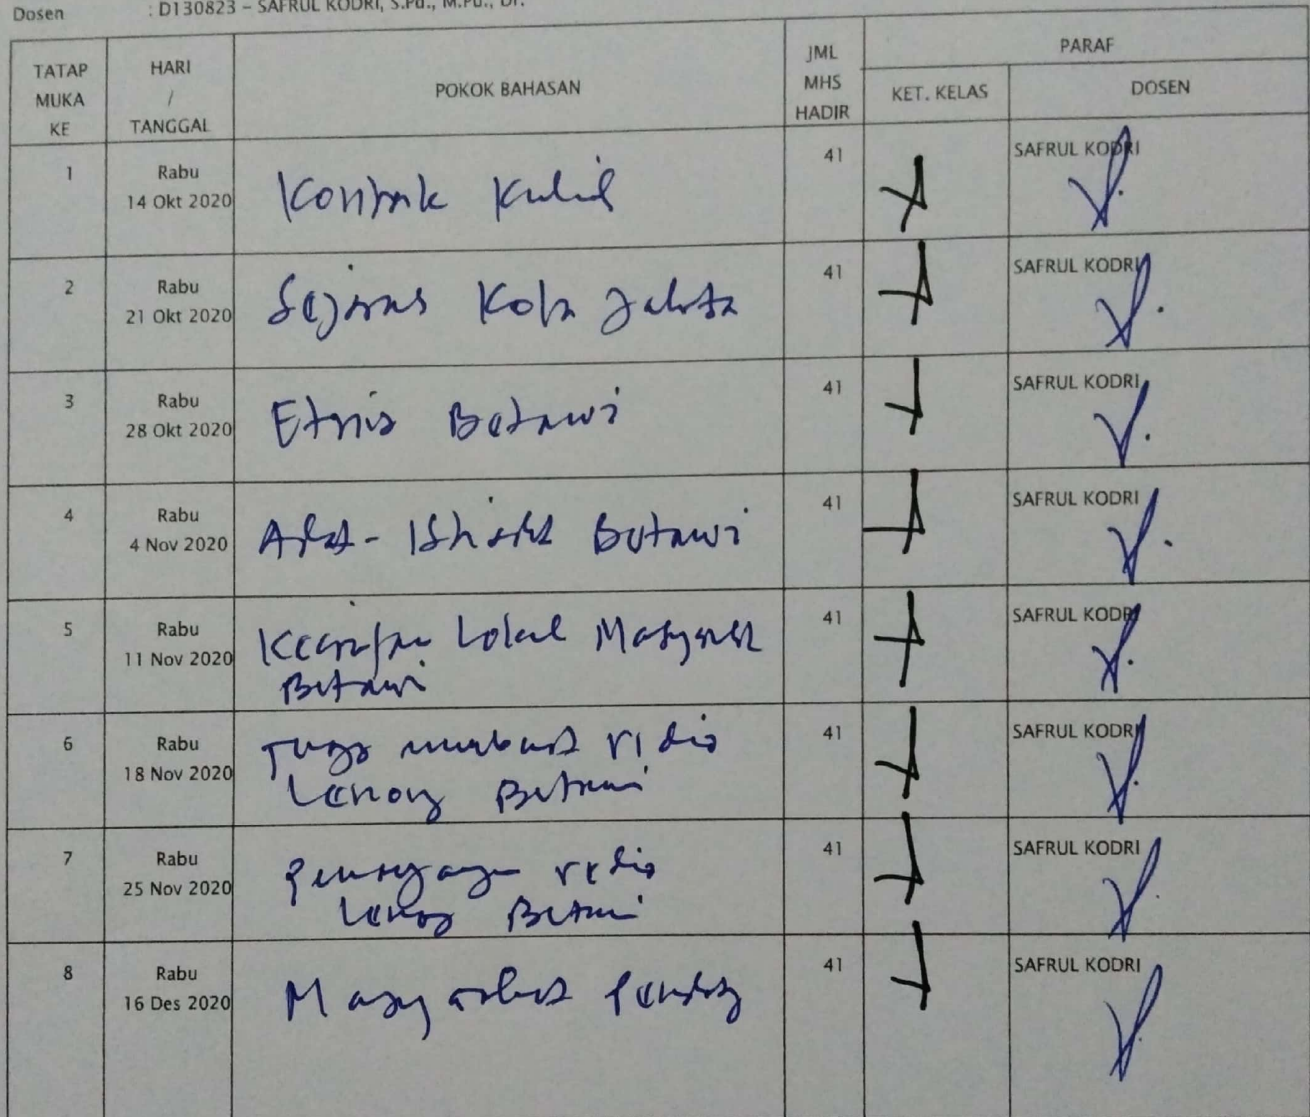 Dosen : D130823 – SAFRUL KODRI, S.Pd., M.Pd., Dr.
TATAP MUKA KE
HARI / TANGGAL
POKOK BAHASAN
JML MHS HADIR
PARAF
KET. KELAS
DOSEN
1 Rabu 14 Okt 2020 Kontrak Kuliah 41 SAFRUL KODRI
2 Rabu 21 Okt 2020 Sejarah Kota Jakarta 41 SAFRUL KODRI
3 Rabu 28 Okt 2020 Etnis Betawi 41 SAFRUL KODRI
4 Rabu 4 Nov 2020 Adat-Istiadat Betawi 41 SAFRUL KODRI
5 Rabu 11 Nov 2020 Kearifan Lokal Masyarakat 41 SAFRUL KODRI
Betawi
6 Rabu 18 Nov 2020 Tugas membuat vidio 41 SAFRUL KODRI
Lenong Betawi
7 Rabu 25 Nov 2020 Penayangan vidio 41 SAFRUL KODRI
Lenong Betawi
8 Rabu 16 Des 2020 Masyarakat 41 SAFRUL KODRI